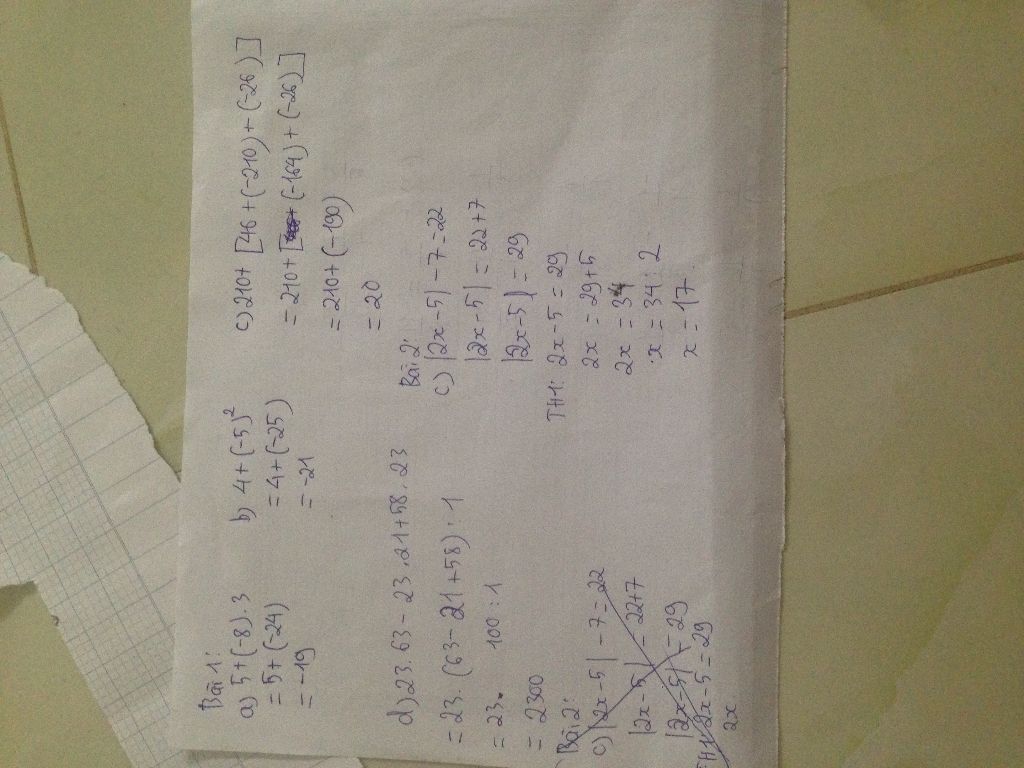 Bài 1:
a) 5+(-8).3
= 5+(-24)
= -19
b) 4+(-5)²
= 4+(-25)
= -21
c) 210+[46+(-210)+(-26)]
= 210+[(-164)+(-26)]
= 210+(-190)
= 20
d) 23.63-23.21+58.23
= 23.(63-21+58).1
= 23. 100:1
= 2300
Bài 2:
c) |2x-5|-7=22
|2x-5| = 22+7
|2x-5| = 29
TH1: 2x-5=29
2x
Bài 2:
c) |2x-5|-7=22
|2x-5| = 22+7
|2x-5| = 29
TH1: 2x-5=29
2x = 29+5
2x = 34
x = 34:2
x = 17